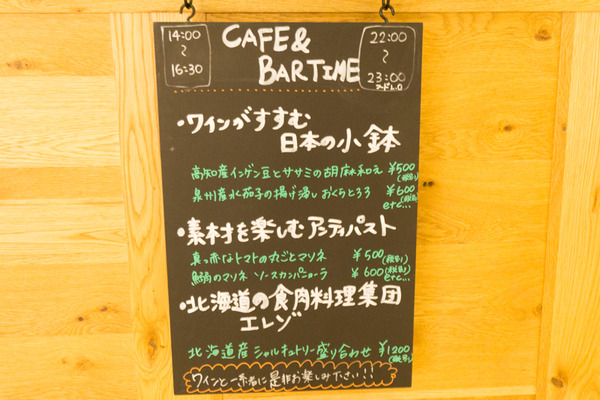 14:00
〜
16:30
CAFE&
BARTIME
22:00
〜
23:00
フードL.O
・ワインがすすむ
日本の小鉢
高知産インゲン豆とササミの胡麻和え ¥500
(税別)
泉州産水茄子の揚げ浸し おくらとろろ ¥600
(税別)
etc...
・素材を楽しむアンティパスト
真っ赤なトマトの丸ごとマリネ ¥500(税別)
鯖のマリネ ソースカンパニョーラ ¥600(税別)
etc...
・北海道の食肉料理集団
エレゾ
北海道産シャルキュトリー盛り合わせ ¥1200
(税別)
ワインと一緒に是非お楽しみ下さい!!